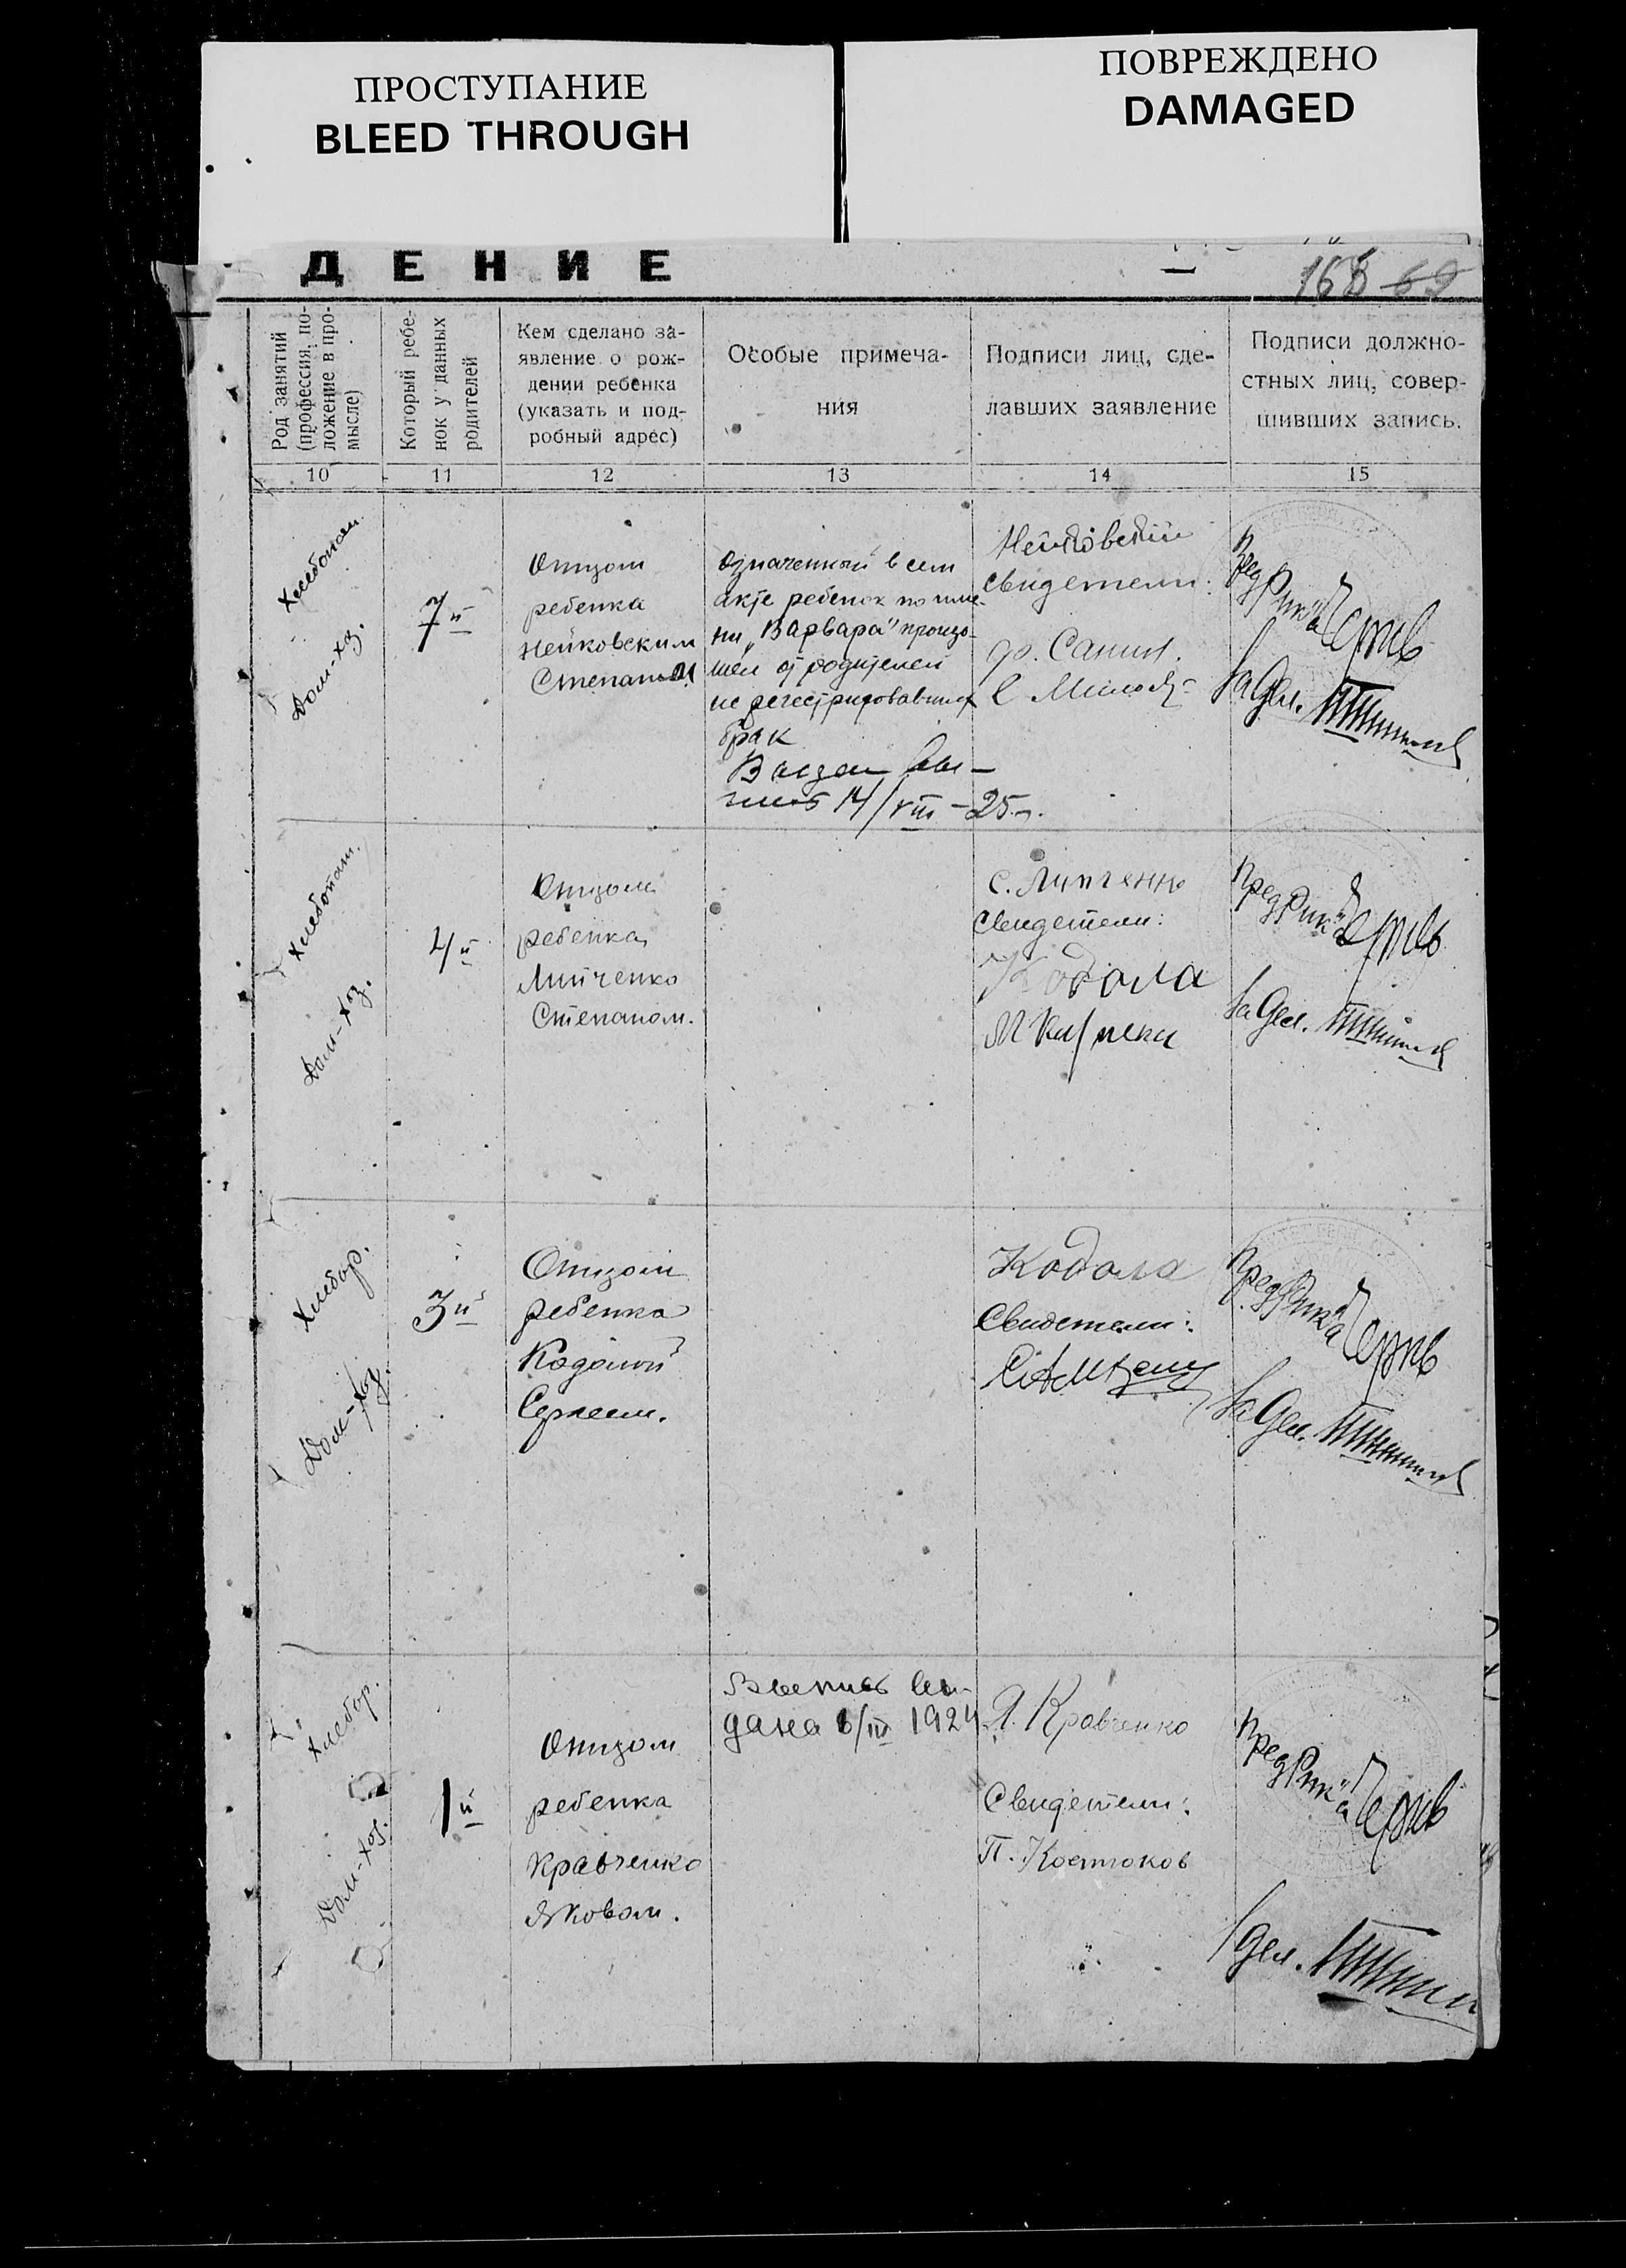 ПРОСТУПАНИЕ
BLEED THROUGH
ПОВРЕЖДЕНО
DAMAGED
ДЕНИЕ
168 69
Род занятий
(профессия, по-
ложение в про-
мысле)
Который ребе-
нок у данных
родителей
Кем сделано за-
явление о рож-
дении ребенка
(указать и под-
робный адрес)
Особые примеча-
ния
Подписи лиц, сде-
лавших заявление
Подписи должно-
стных лиц, совер-
шивших запись.
10
11
12
13
14
15
Хлебопаш.
Дом-хоз.
7й
Отцом
ребенка
Нейковским
Степаном
Означенный в сем
акте ребенок по име-
ни „Варвара" произо-
шел от родителей
не регестрировавших
брак
Выдан вы-
пись 14/VIII-25 г.
Свидетели:
Пред Рик'а
Дел.
Хлебопаш.
Дом-хоз.
4й
Отцом
ребенка
Липченко
Степаном.
С. Липченко
Свидетели:
Кодола
Пред Рик'а
Дел.
Хлебор.
Дом-хоз.
3й
Отцом
ребенка
Кодолой
Сергеем.
Кодола
Свидетели:
Пред Рик'а
Дел.
Хлебор.
Дом-хоз.
1й
Отцом
ребенка
Кравченко
Яковом.
Выпись вы-
дана 6/III 1924
Я. Кравченко
Свидетели:
П. Костюков
Пред Рик'а
Дел.